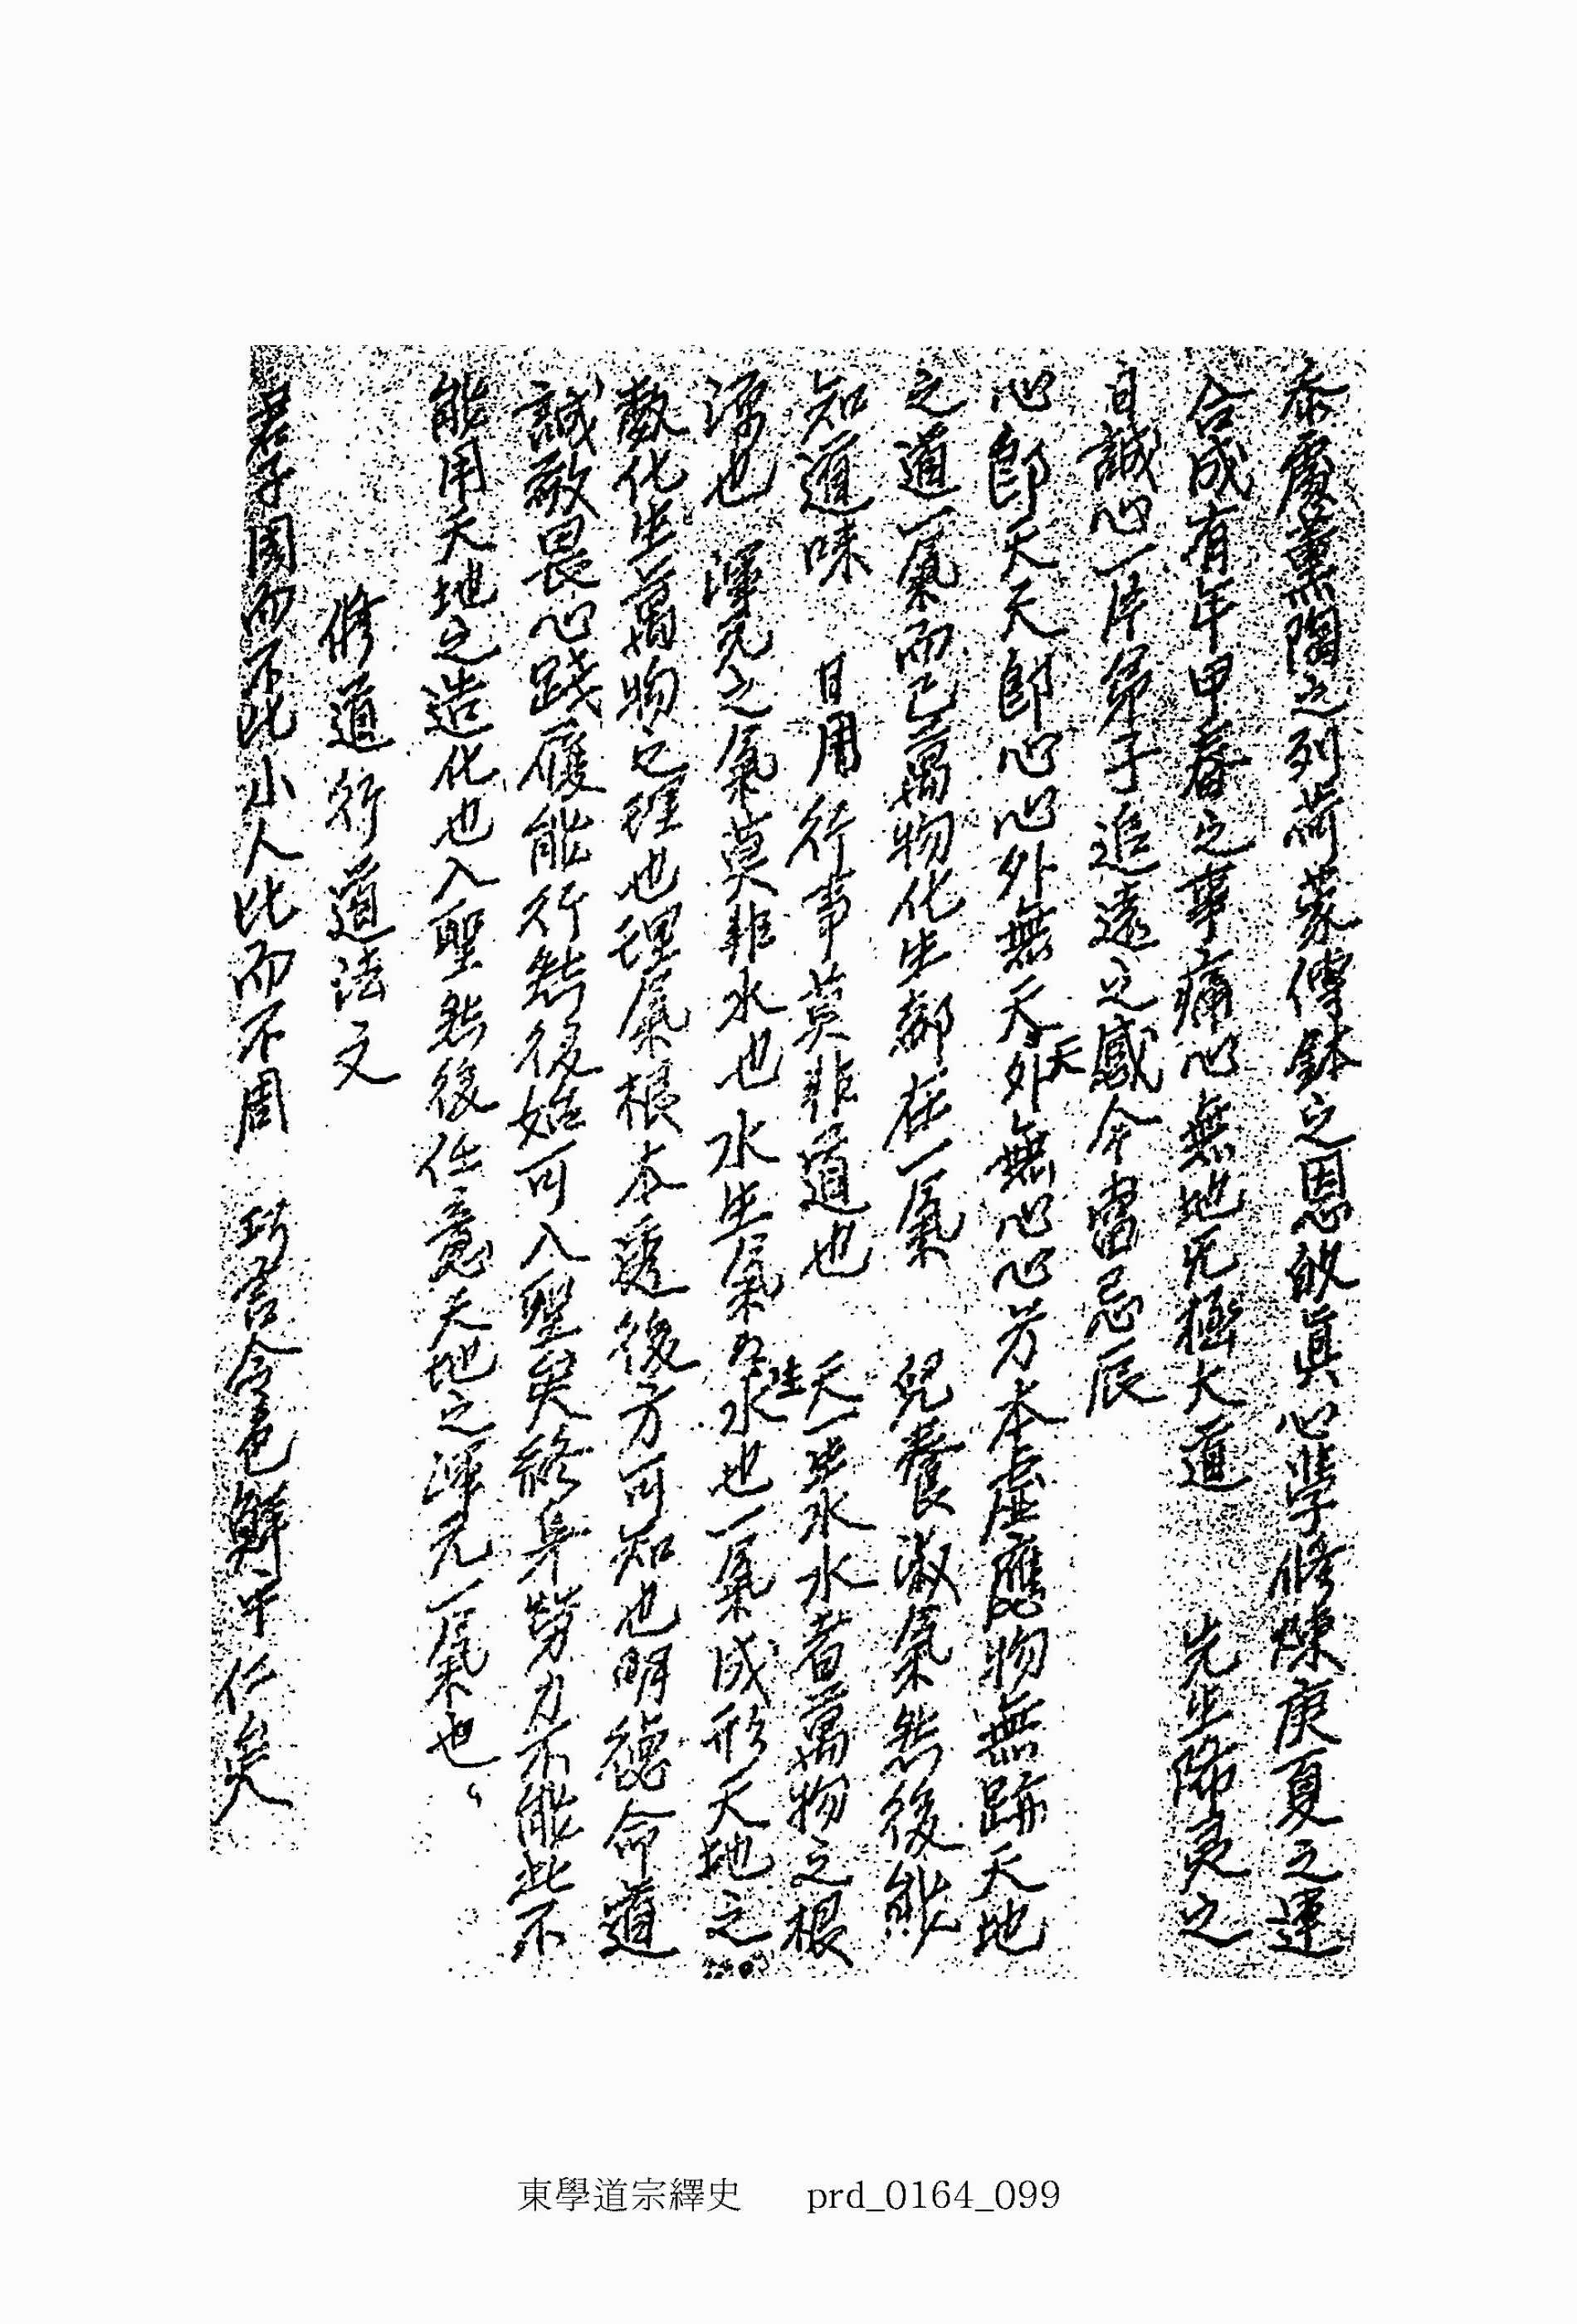 忝處薰陶之列荷蒙傳鉢之恩故眞心學修煉庚夏之運
合成有年甲春之事痛心無地无極大道 先生降灵之
日誠心一片弟子追遠之感今當忌辰
心卽天天卽心心外無天天外無心心兮本虛應物無跡天地
之道一氣而已萬物化生都在一氣 兒養淑氣然後能
知道味 日用行事莫非道也 天一生水水者萬物之根
源也 渾元之氣莫非水也水生氣氣生水也一氣成形天地之
數化生萬物之理也理氣根本透後方可知也明德命道
誠敬畏心踐履能行然後始可入聖矣終身勞力不能此不
能用天地之造化也入聖然後任意天地之渾元一氣也
修道行道法文
君子周而不比小人比而不周 巧言令色鮮乎仁矣
東學道宗繹史 prd_0164_099